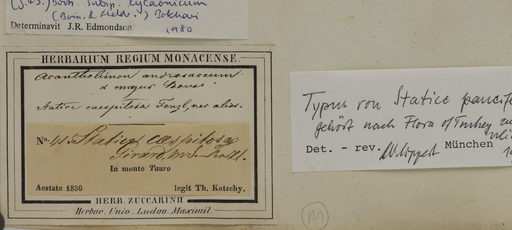 (J.&S.) Boiss. subsp. lycaonicum
(Boiss. & Heldr.) Bokhari
Determinavit J.R. Edmondson 1980
HERBARIUM REGIUM MONACENSE.
Acantholimon androsaceum
α majus Boiss.
Statice caespitosa Fenzl, nec alior.
No. 415 Statice caespitosa
In monte Tauro
Aestate 1836 legit Th. Kotschy.
HERB. ZUCCARINII
Herbar. Univ. Ludov. Maximil.
Typus von Statice
gehört nach Flora of Turkey
Det. - rev. W. Lippert München
M